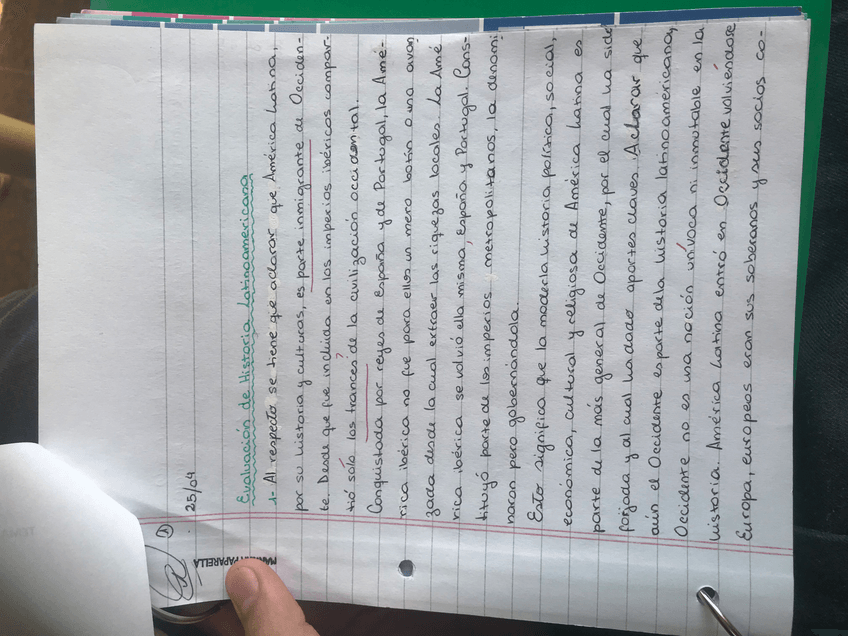 1
25/04
PAPARELLA
Evaluación de Historia Latinoamericana
1- Al respecto se tiene que aclarar que América Latina,
por su historia y culturas, es parte inmigrante de Occiden-
te. Desde que fue incluida en los imperios ibéricos compar-
tió sólo los trances de la civilización occidental.
Conquistada por reyes de España y de Portugal, la Amé-
rica ibérica no fue para ellos un mero botín o una avan
zada desde la cual extraer las riquezas locales. La Amé
rica Ibérica se volvió ella misma, España y Portugal. Cons-
tituyó parte de los imperios y metropolitanos, la denomi
naron pero gobernándola.
Esto significa que la moderla historia política, social,
económica, cultural y religiosa de América Latina es
parte de la más general de Occidente, por el cual ha sido
forjada y al cual ha dado aportes claves. Aclarar que
aún el Occidente es parte dela historia latinoamericana,
Occidente no es una noción unívoca ni inmutable en la
historia. América Latina entró en Occidente volviéndose
Europa, europeos eran sus soberanos y sus socios co-